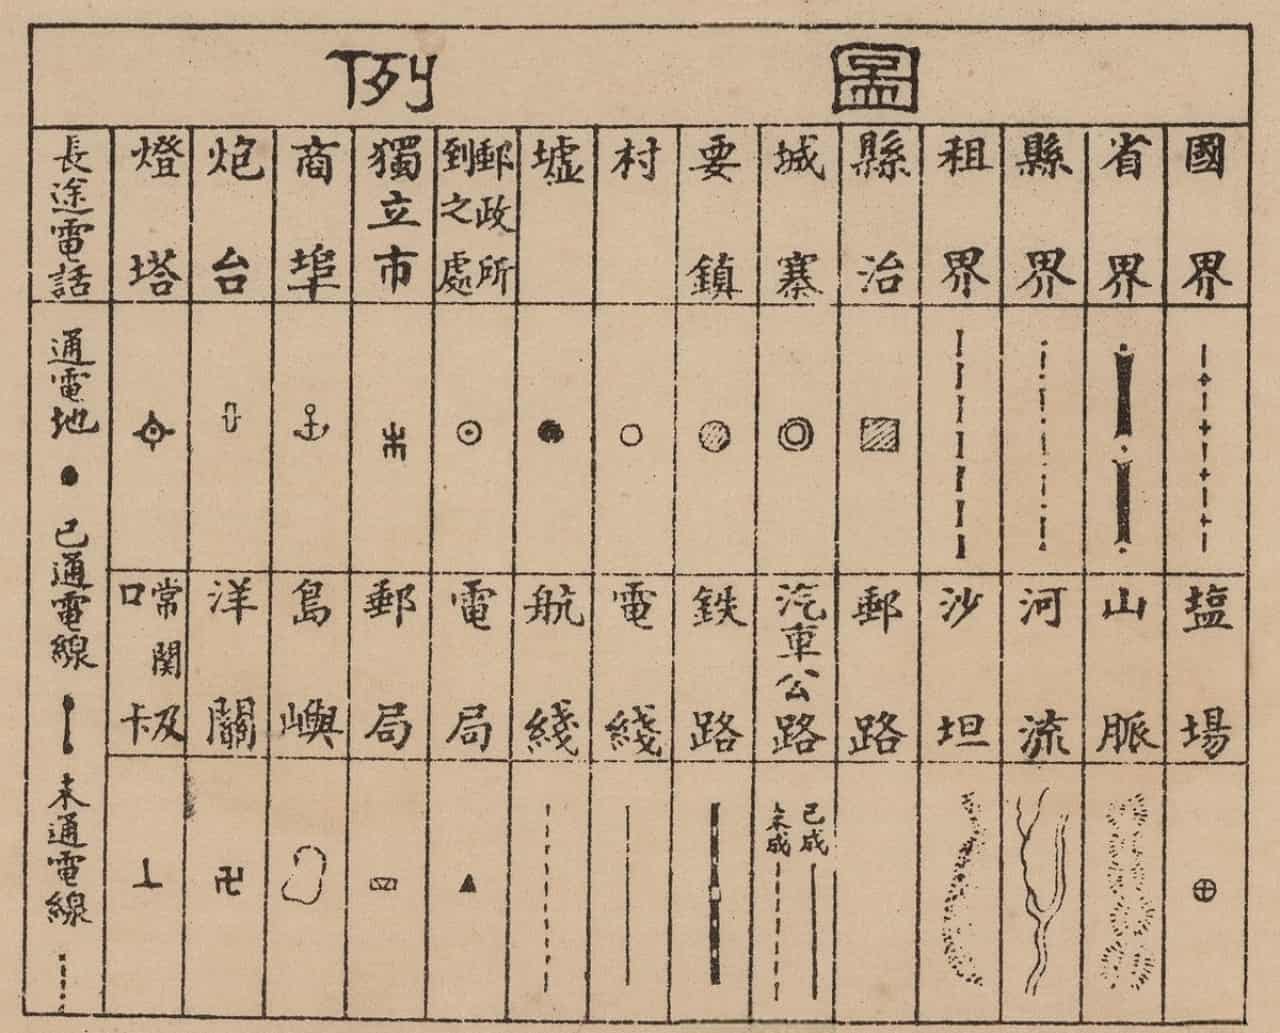 圖例
國界
省界
縣界
租界
縣治
城寨
要鎮
村
墟
郵政所
到之處
獨立市
商埠
炮台
燈塔
塩場
山脈
河流
沙坦
郵路
汽車公路
已成
未成
鉄路
電綫
航綫
電局
郵局
島嶼
洋關
常関及
口卡
長途電話
通電地
已通電線
未通電線